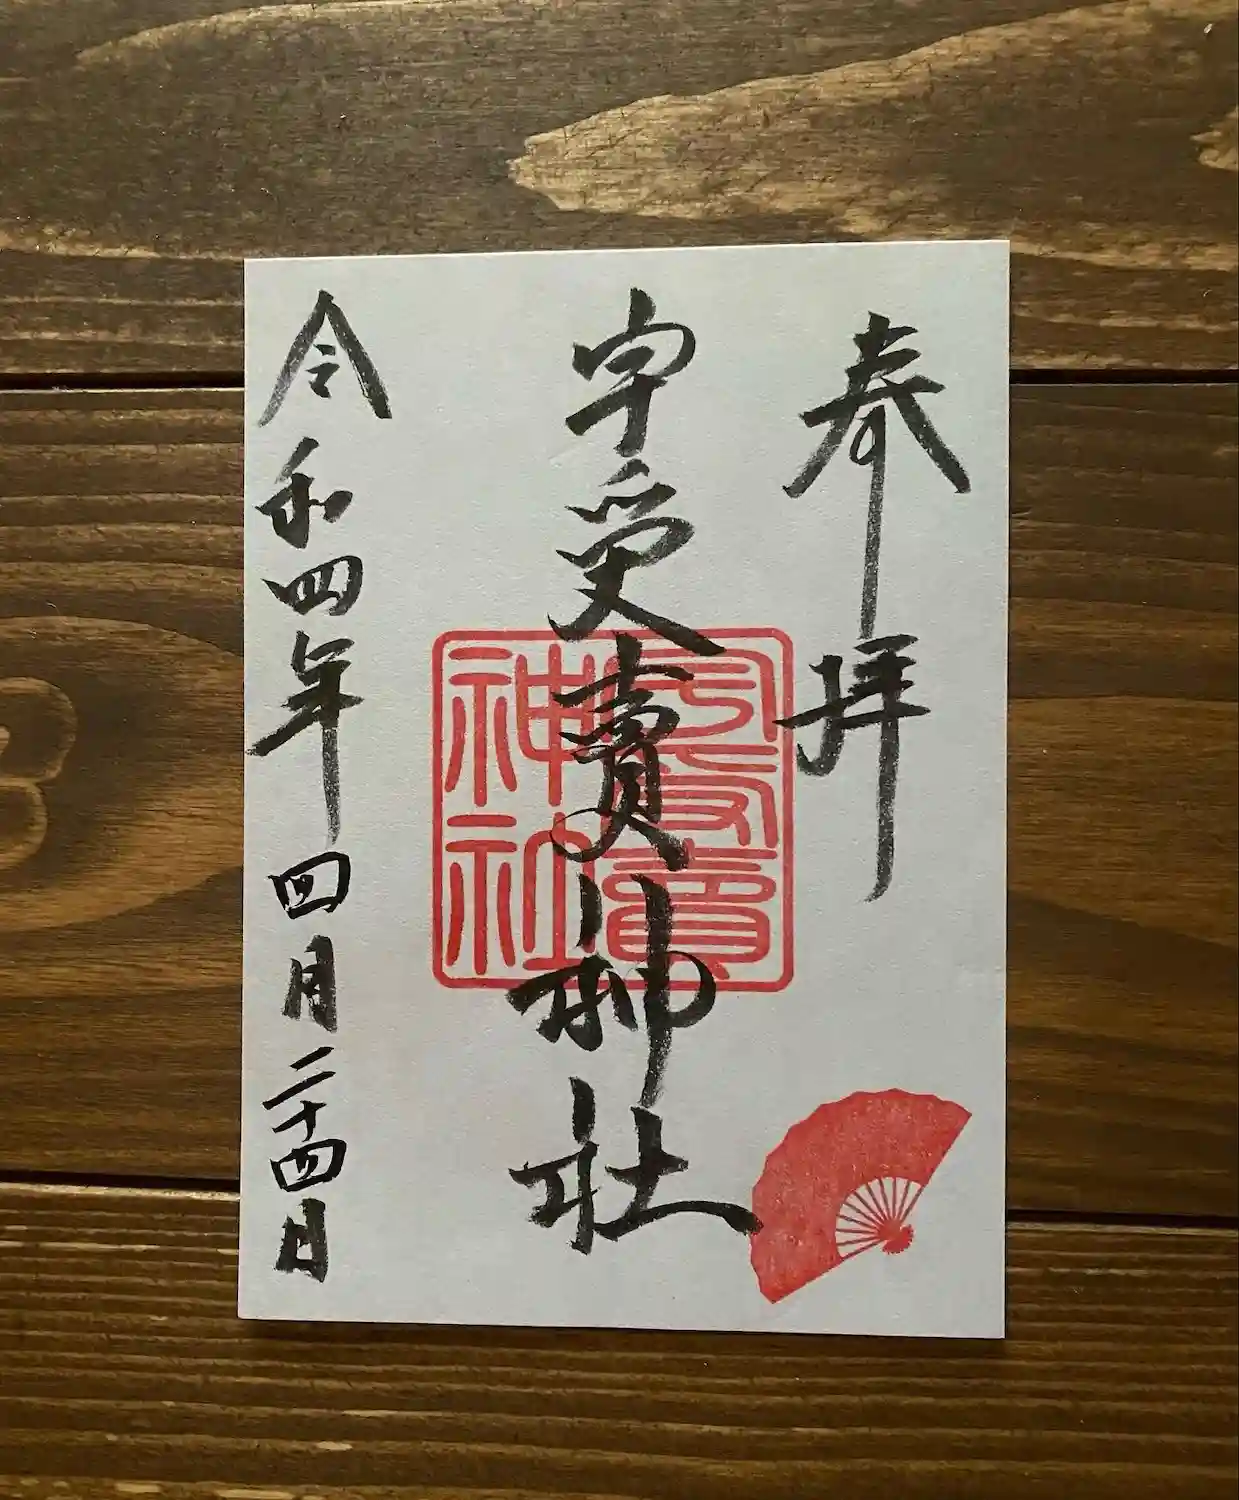 奉拝
宇受賣神社
令和四年四月二十四日
宇受賣
神社